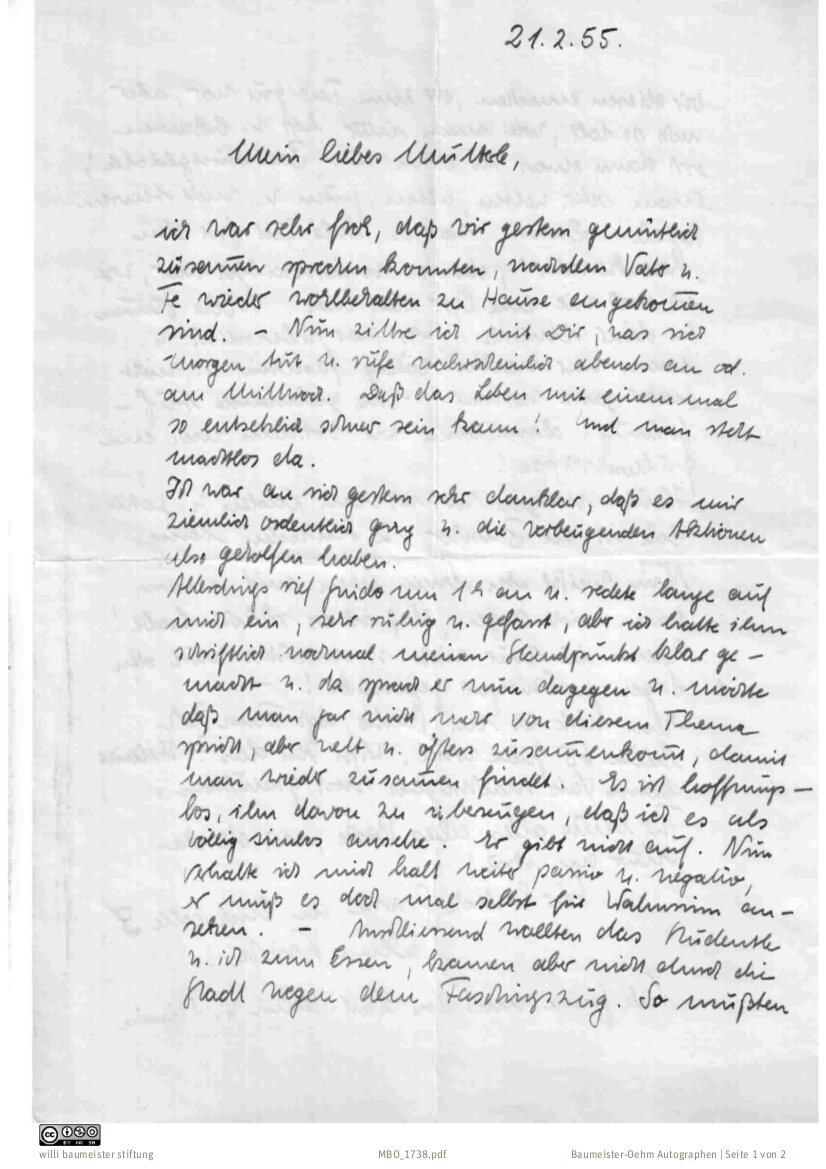 21.2.55.
Mein liebes Muttele,
ich war sehr froh, daß wir gestern gemütlich
zusam̅en sprechen konnten, nachdem Vater u.
Fe wieder wohlbehalten zu Hause angekom̅en
sind. – Nun zittre ich mit Dir, was sich
morgen tut u. rufe wahrscheinlich abends an od.
am Mittwoch. Daß das Leben mit einem mal
so entsetzlich schwer sein kann! Und man steht
machtlos da.
Ich war an sich gestern sehr dankbar, daß es mir
ziemlich ordentlich ging u. die vorbeugenden Aktionen
also geholfen haben.
Allerdings rief Guido um 1 h an u. redete lange auf
mich ein, sehr ruhig u. gefasst, aber ich hatte ihm
schriftlich nochmal meinen Standpunkt klar ge –
macht u. da sprach er nun dagegen u. möchte
daß man gar nicht mehr von diesem Thema
spricht, aber nett u. öfters zusam̅enkom̅t, damit
man wieder zusam̅en findet. Es ist hoffnungs –
los, ihm davon zu überzeugen, daß ich es als
völlig sinnlos ansehe. Er gibt nicht auf. Nun
verhalte ich mich halt weiter passiv u. negativ,
er muß es doch mal selbst für Wahnsinn an –
sehen. – Anschliessend wollten das Rüdentle
u. ich zum Essen, kamen aber nicht durch die
Stadt wegen dem Faschingszug. So mußten
willi baumeister stiftung
MBO_1738.pdf
Baumeister-Oehm Autographen | Seite 1 von 2